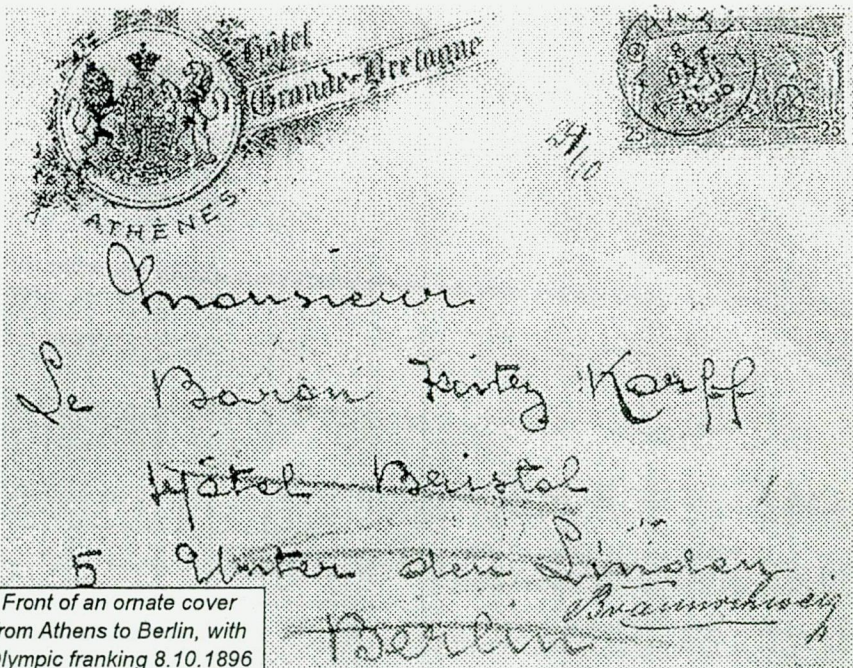 Hôtel
Grande-Bretagne
ATHÈNES.
25 25
29/10
Monsieur
Le Baron Korff
Hôtel Bristol
5 Unter den Linden
Braunschweig
Berlin
Front of an ornate cover
rom Athens to Berlin, with
lympic franking 8.10.1896